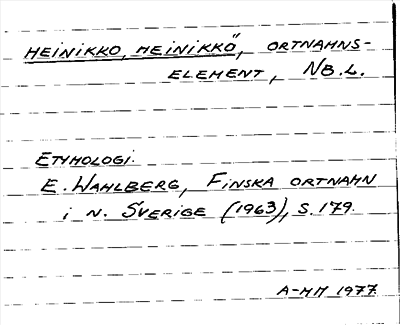 HEINIKKO, HEINIKKÖ, ORTNAMNS-
ELEMENT, NB.L.
ETYMOLOGI.
E. WAHLBERG, FINSKA ORTNAMN
i N. SVERIGE (1963), S. 179.
A-MM 1977